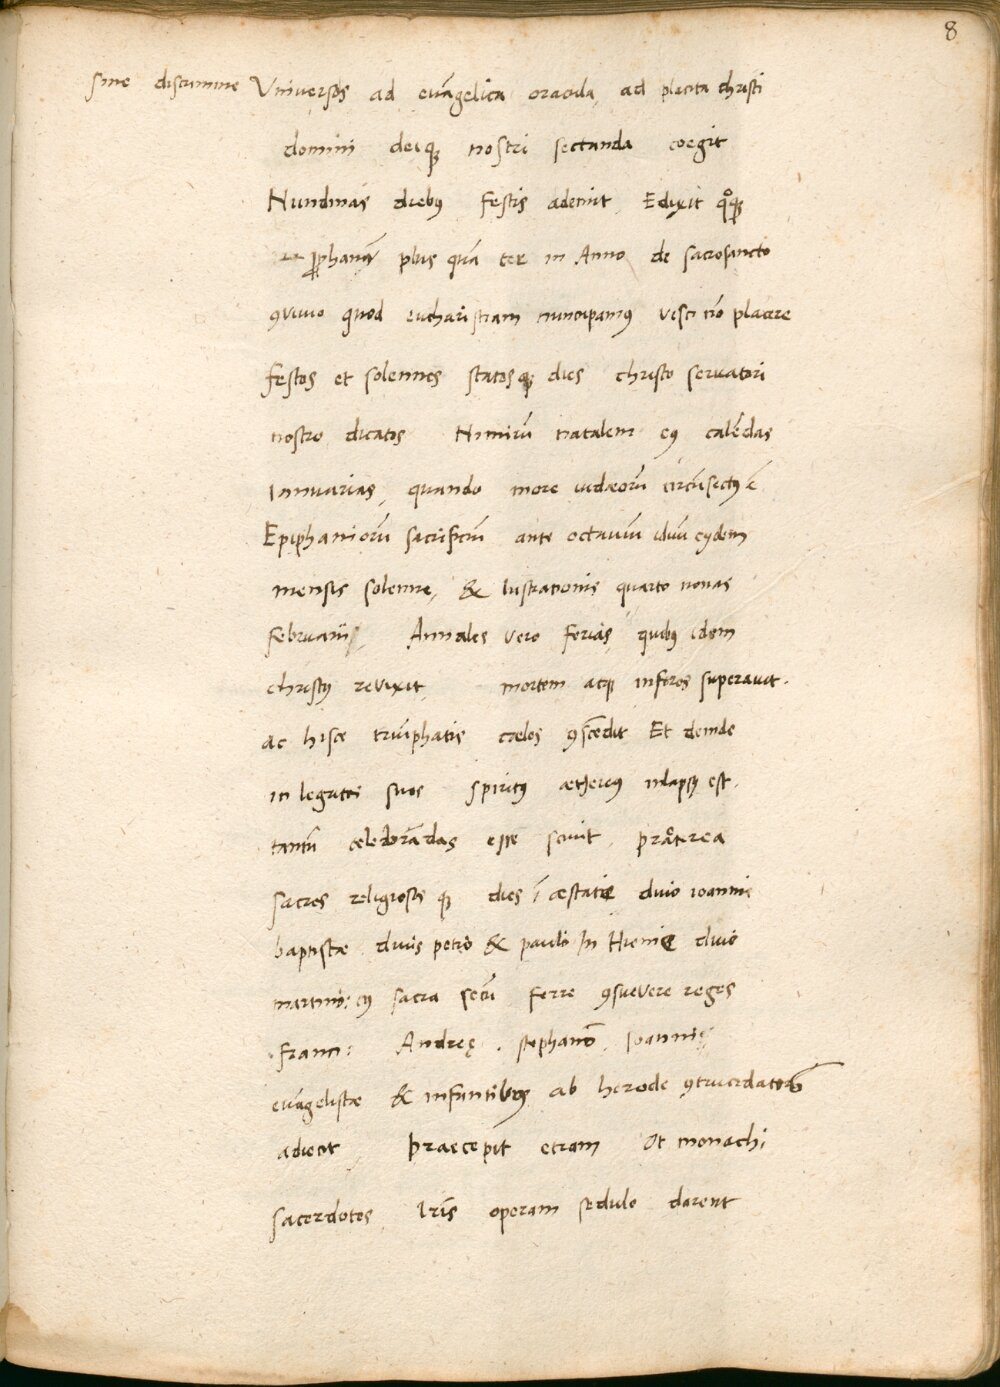 8
sine discrimine Universos ad evãgelica oracula, ad placita christi
domini deiqꝫ nostri sectanda coegit
Nundinas diebꝰ festis ademit Edixit qͦqꝫ
ꝓphanũ plus quã ter in Anno de sacrosancto
ꝯvivio quod eucharistiam nuncupamꝰ vesci nõ placere
festos et solennes statosqꝫ dies christo servatori
nostro dicatos Nimirũ natalem eꝰ calẽdas
Ianuarias, quando more iudæorũ circũsectꝰ ẽ
Epiphaniorũ sacrificiũ ante octavum iduũ eꝰdem
mensis solenne, & lustrationis quarto nonas
februarii, Annales vero ferias, quibꝰ idem
christꝰ revixit mortem atqꝫ inferos superavit.
ac hisce triũphatis cælos ꝯscẽdit Et deinde
in legatos suos Spiritꝰ æthereꝰ inlapsꝰ est.
tantũ celebrãdas esse scivit præterea
sacros religiososqꝫ dies ĩ æstate divo ioanni
baptistæ divis petro & paulo In Hieme divo
martino: cꝰ sacra secũ ferre ꝯsuevere reges
franci: Andreę. stephano, Ioanni
evãgelistæ & infantibus ab herode ꝯtrucidatis
adiecit, Praecepit etiam Ut monachi
sacerdotes lr̃is operam sedulo darent